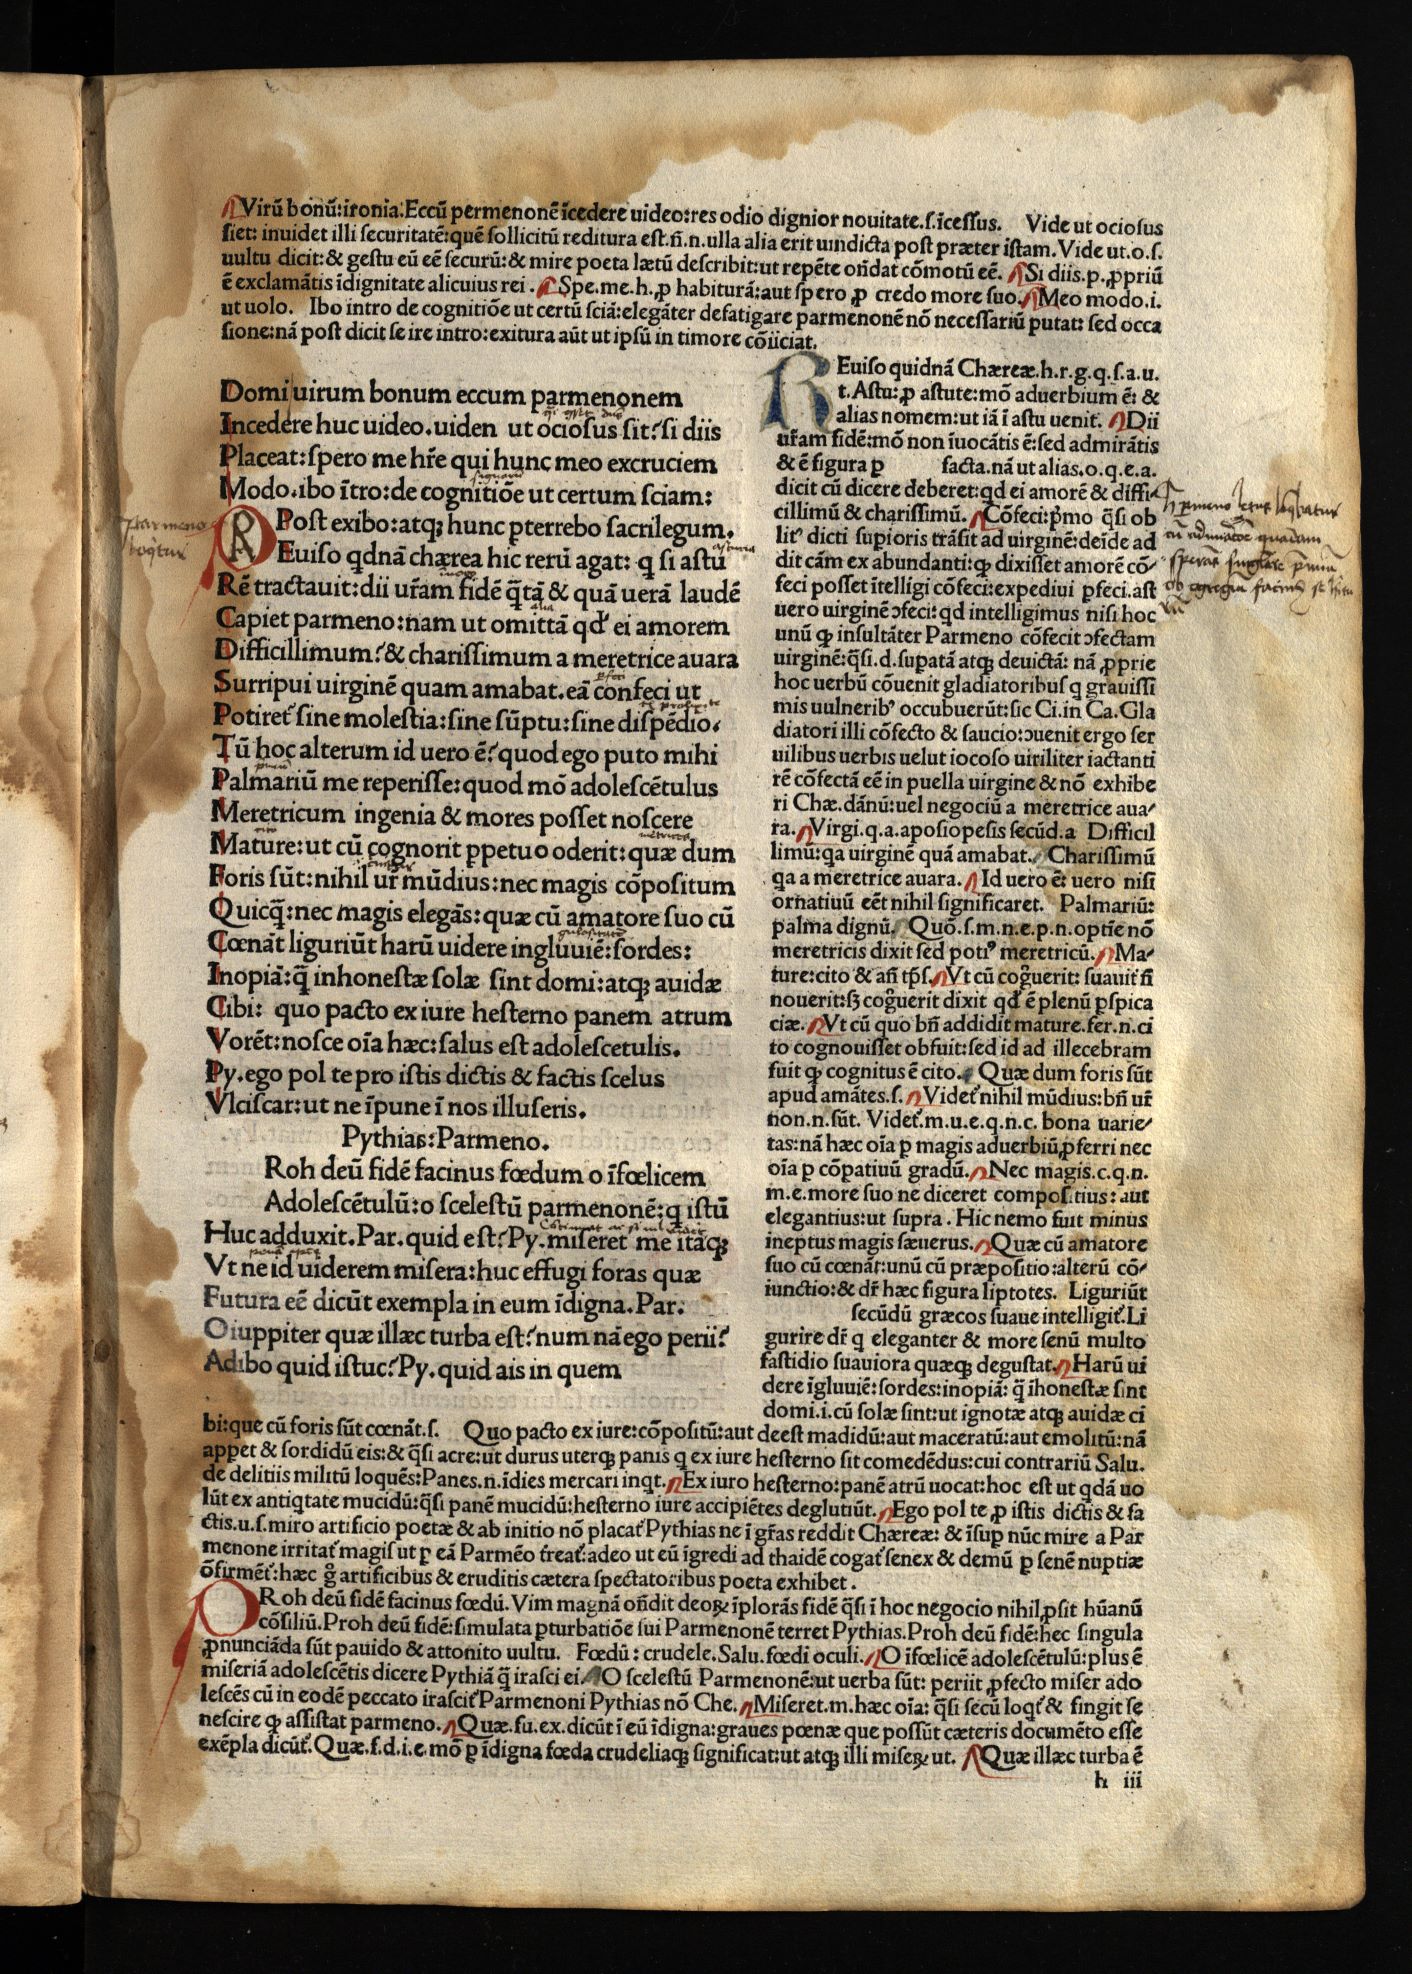 Virū bonū:ironia.Eccū permenonē īcedere uideo:res odio dignior nouitate.s.īcessus. Vide ut ociosus
siet: inuidet illi securitatē:quē sollicitū reditura est.n̄.n.ulla alia erit uindicta post præter istam.Vide ut.o.s.
uultu dicit:& gestu eū eē securū:& mire poeta lætū describit:ut repēte on̄dat cōmotū eē. Si diis.p.ꝓpriū
ē exclamātis īdignitate alicuius rei. Spe.me.h.ꝓ habiturā:aut spero ꝓ credo more suo. Meo modo.i.
ut uolo. Ibo intro de cognitiōe ut certū sciā:elegāter defatigare parmenonē nō necessariū putat: sed occa
sione:nā post dicit se ire intro:exitura aūt ut ipsū in timore cōiiciat.
Domi uirum bonum eccum parmenonem
Incedere huc uideo.uiden ut ociosus sit?si diis
Placeat:spero me hr̄e qui hunc meo excruciem
Modo.ibo ītro:de cognitiōe ut certum sciam:
Post exibo:atqꝫ hunc ꝑterrebo sacrilegum.
REuiso qdnā chærea hic rerū agat: q si astu
Rē tractauit:dii ur̄am fidē q̄tā & quā uerā laudē
Capiet parmeno:nam ut omittā qd' ei amorem
Difficillimum?& charissimum a meretrice auara
Surripui uirginē quam amabat.eā confeci ut
Potiret᷑ sine molestia:sine sūptu:sine dispēdio.
Tū hoc alterum id uero ē?quod ego puto mihi
Palmariū me reperisse:quod mō adolescētulus
Meretricum ingenia & mores posset noscere
Mature:ut cū cognorit ꝑpetuo oderit:quæ dum
Foris sūt:nihil ur̄ mūdius:nec magis cōpositum
Quicq̄:nec magis elegās:quæ cū amatore suo cū
Cœnāt liguriūt harū uidere ingluuiē:sordes:
Inopiā:q̄ inhonestæ solæ sint domi:atqꝫ auidæ
Cibi: quo pacto ex iure hesterno panem atrum
Vorēt:nosce oīa hæc:salus est adolescetulis.
Py.ego pol te pro istis dictis & factis scelus
Vlciscar:ut ne īpune ī nos illuseris.
Pythias:Parmeno.
Roh deū fidē facinus fœdum o īfœlicem
Adolescētulū:o scelestū parmenonē:q istū
Huc adduxit.Par.quid est?Py.miseret me itaqꝫ
Vt ne id uiderem misera:huc effugi foras quæ
Futura eē dicūt exempla in eum īdigna.Par.
O iuppiter quæ illæc turba est?num nā ego perii?
Adibo quid istuc?Py.quid ais in quem
REuiso quidnā Chæreæ.h.r.g.q.s.a.u.
t.Astu:ꝓ astute:mō aduerbium ē: &
alias nomem:ut iā ī astu uenit. Dii
ur̄am fidē:mō non īuocātis ē:sed admirātis
& ē figura ꝑ facta.nā ut alias.o.q.e.a.
dicit cū dicere deberet:qd ei amorē & diffi
cillimū & charissimū. Cōfeci:pr̄mo q̄si ob
lit᷑ dicti suꝑioris trāsit ad uirginē:deīde ad
dit cām ex abundanti:qꝫ dixisset amorē cō
feci posset ītelligi cōfeci:expediui ꝑfeci.ast
uero uirginē ɔfeci:qd intelligimus nisi hoc
unū qꝫ insultāter Parmeno cōfecit ɔfectam
uirginē:q̄si.d.suꝑatā atqꝫ deuictā: nā ꝓprie
hoc uerbū cōuenit gladiatoribus q grauissi
mis uulneribꝰ occubuerūt:sic Ci.in Ca.Gla
diatori illi cōfecto & saucio:ɔuenit ergo ser
uilibus uerbis uelut iocoso uiriliter iactanti
rē cōfectā eē in puella uirgine & nō exhibe
ri Chæ.dānū:uel negociū a meretrice aua
ra. Virgi.q.a.aposiopesis secūd.a Difficil
limū:qa uirginē quā amabat. Charissimū
qa a meretrice auara. Id uero ē: uero nisi
ornatiuū eēt nihil significaret. Palmariū:
palma dignū. Quō.s.m.n.e.p.n.optīe nō
meretricis dixit sed potiꝰ meretricū. Ma
ture:cito & an̄ tp̄s. Vt cū cog̃uerit: suauit n̄
nouerit:sꝫ cog̃uerit dixit qd' ē plenū ꝑspica
ciæ. Vt cū quo bn̄ addidit mature.fer.n.ci
to cognouisset obfuit:sed id ad illecebram
fuit qꝫ cognitus ē cito. Quæ dum foris sūt
apud amātes.s. Videt᷑ nihil mūdius:bn̄ ur̄
non.n.sūt. Videt᷑.m.u.e.q.n.c. bona uarie
tas:nā hæc oīa ꝑ magis aduerbiū ꝓferri nec
oīa ꝑ cōparatiuū gradū. Nec magis.c.q.n.
m.e.more suo ne diceret compositius: aut
elegantius:ut supra. Hic nemo fuit minus
ineptus magis sæuerus. Quæ cū amatore
suo cū cœnāt:unū cū præpositio:alterū cō
iunctio:& dr̄ hæc figura liptotes. Liguriūt
secūdū græcos suaue intelligit᷑.Li
gurire dr̄ q eleganter & more senū multo
fastidio suauiora quæqꝫ degustat. Harū ui
dere īgluuiē:sordes:inopiā: q̄ īhonestæ sint
domi.i.cū solæ sint:ut ignotæ atqꝫ auidæ ci
bi:que cū foris sūt cœnāt.s. Quo pacto ex iure:cōpositū:aut deest madidū:aut maceratū:aut emolitū:nā
appet & sordidū eis:& q̄si acre:ut durus uterqꝫ panis q ex iure hesterno sit comedēdus:cui contrariū Salu.
de delitiis militū loquēs:Panes.n.īdies mercari inqt. Ex iuro hesterno:panē atrū uocat:hoc est ut qdā uo
lūt ex antiqtate mucidū:q̄si panē mucidū:hesterno iure accipiētes deglutiūt. Ego pol te ꝓ istis dictis & fa
ctis.u.s.miro artificio poetæ & ab initio nō placat᷑ Pythias ne ī gr̄as reddit Chæreæ: & īsuꝑ nūc mire a Par
menone irritat᷑ magis ut ꝑ eā Parmēo t̄reat᷑:adeo ut eū īgredi ad thaidē cogat᷑ senex & demū ꝑ senē nuptiæ
ōfirmēt᷑:hæc g̊ artificibus & eruditis cætera spectatoribus poeta exhibet.
PRoh deū fidē facinus fœdū. Vim magnā on̄dit deoꝝ īplorās fidē q̄si ī hoc negocio nihil ꝓsit hūanū
cōsiliū.Proh deū fidē:simulata ꝑturbatiōe sui Parmenonē terret Pythias.Proh deū fidē:hec singula
ꝓnunciāda sūt pauido & attonito uultu. Fœdū: crudele.Salu.fœdi oculi. O īfœlicē adolescētulū:plus ē
miseriā adolescētis dicere Pythiā q̄ irasci ei. O scelestū Parmenonē:ut uerba sūt: periit ꝓfecto miser ado
lescēs cū in eodē peccato irascit᷑ Parmenoni Pythias nō Che. Miseret.m.hæc oīa: q̄si secū loqt᷑ & fingit se
nescire qꝫ assistat parmeno. Quæ.fu.ex.dicūt ī eū īdigna:graues pœnæ que possūt cæteris documēto esse
exēpla dicūt᷑.Quæ.f.d.i.e.mō ꝑ īdigna fœda crudeliaqꝫ significat:ut atqꝫ illi miseꝝ ut. Quæ illæc turba ē
h iii